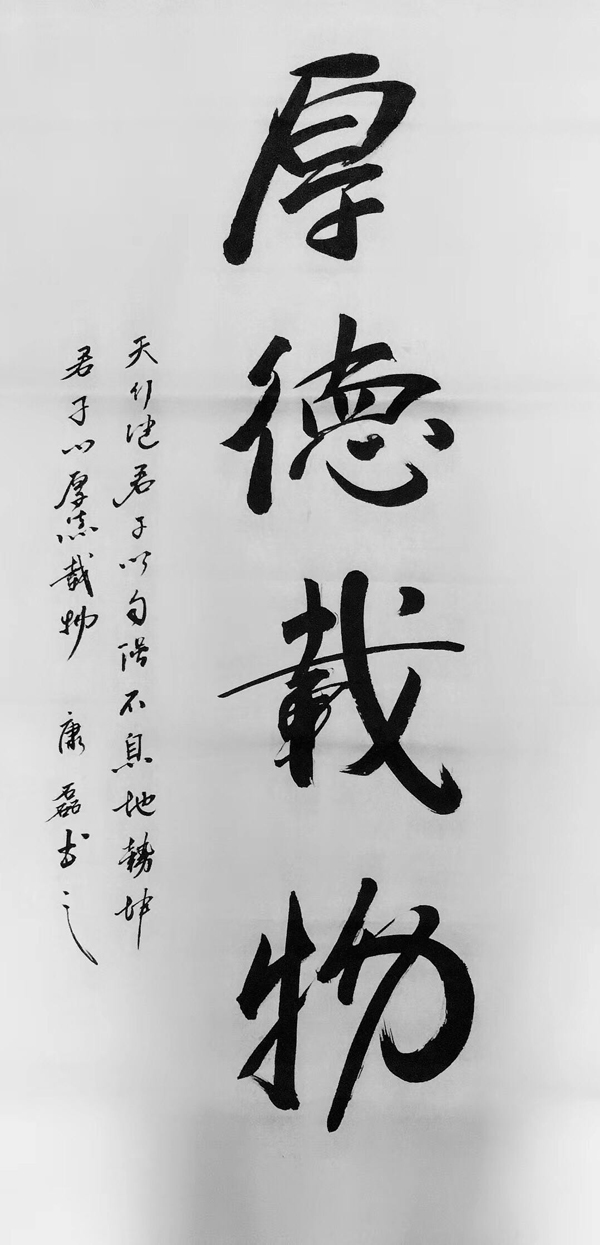 厚德載物
天行健君子以自强不息地勢坤
君子以厚德載物 康磊书之